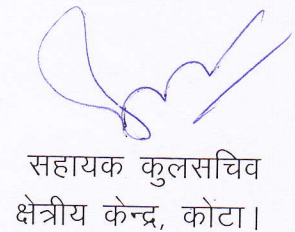 सहायक कुलसचिव
क्षेत्रीय केन्द्र, कोटा।